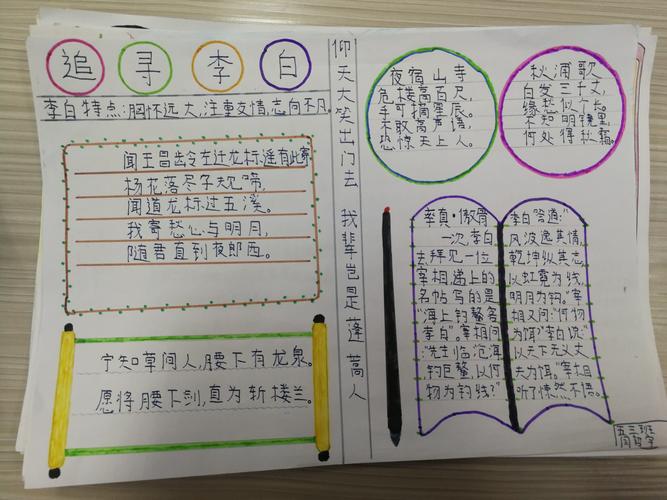 追寻李白
李白特点:胸怀远大,注重友情,志向不凡。
闻王昌龄左迁龙标遥有此寄
杨花落尽子规啼,
闻道龙标过五溪。
我寄愁心与明月,
随君直到夜郎西。
宁知草间人,腰下有龙泉。
愿将腰下剑,直为斩楼兰。
仰天大笑出门去 我辈岂是蓬蒿人
夜宿山寺
危楼高百尺,
手可摘星辰。
不敢高声语,
恐惊天上人。
秋浦歌
白发三千丈,
缘愁似个长。
不知明镜里,
何处得秋霜。
率真·傲骨
一次,李白
去拜见一位
宰相,递上的
名帖写的是
“海上钓鳌客
李白”。宰相问:
“先生临沧海,
钓巨鳌,以何
物为钓线?”
李白答道:“
风波逸其情,
乾坤纵其志,
以虹霓为线,
明月为钩。”宰
相又问:“何物
为饵?”李白说:“
以天下无义丈
夫为饵。”宰相
听了悚然不悟。
五三班